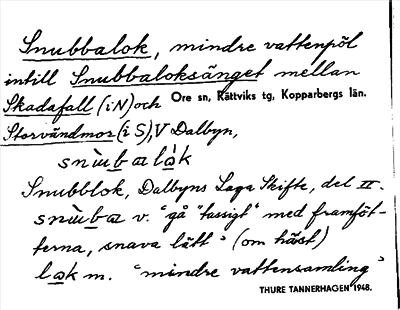 Snubbalok, mindre vattenpöl
intill Snubbaloksänget mellan
Skadafall (i N) och Ore sn, Rättviks tg, Kopparbergs län.
Storvändmor (i S), V Dalbyn,
snùbalàk
Snubblok, Dalbyns Laga Skifte, del II.
snùba v. "gå "tassigt" med framföt-
terna, snava lätt" (om häst)
lak m. "mindre vattensamling"
THURE TANNERHAGEN 1948.